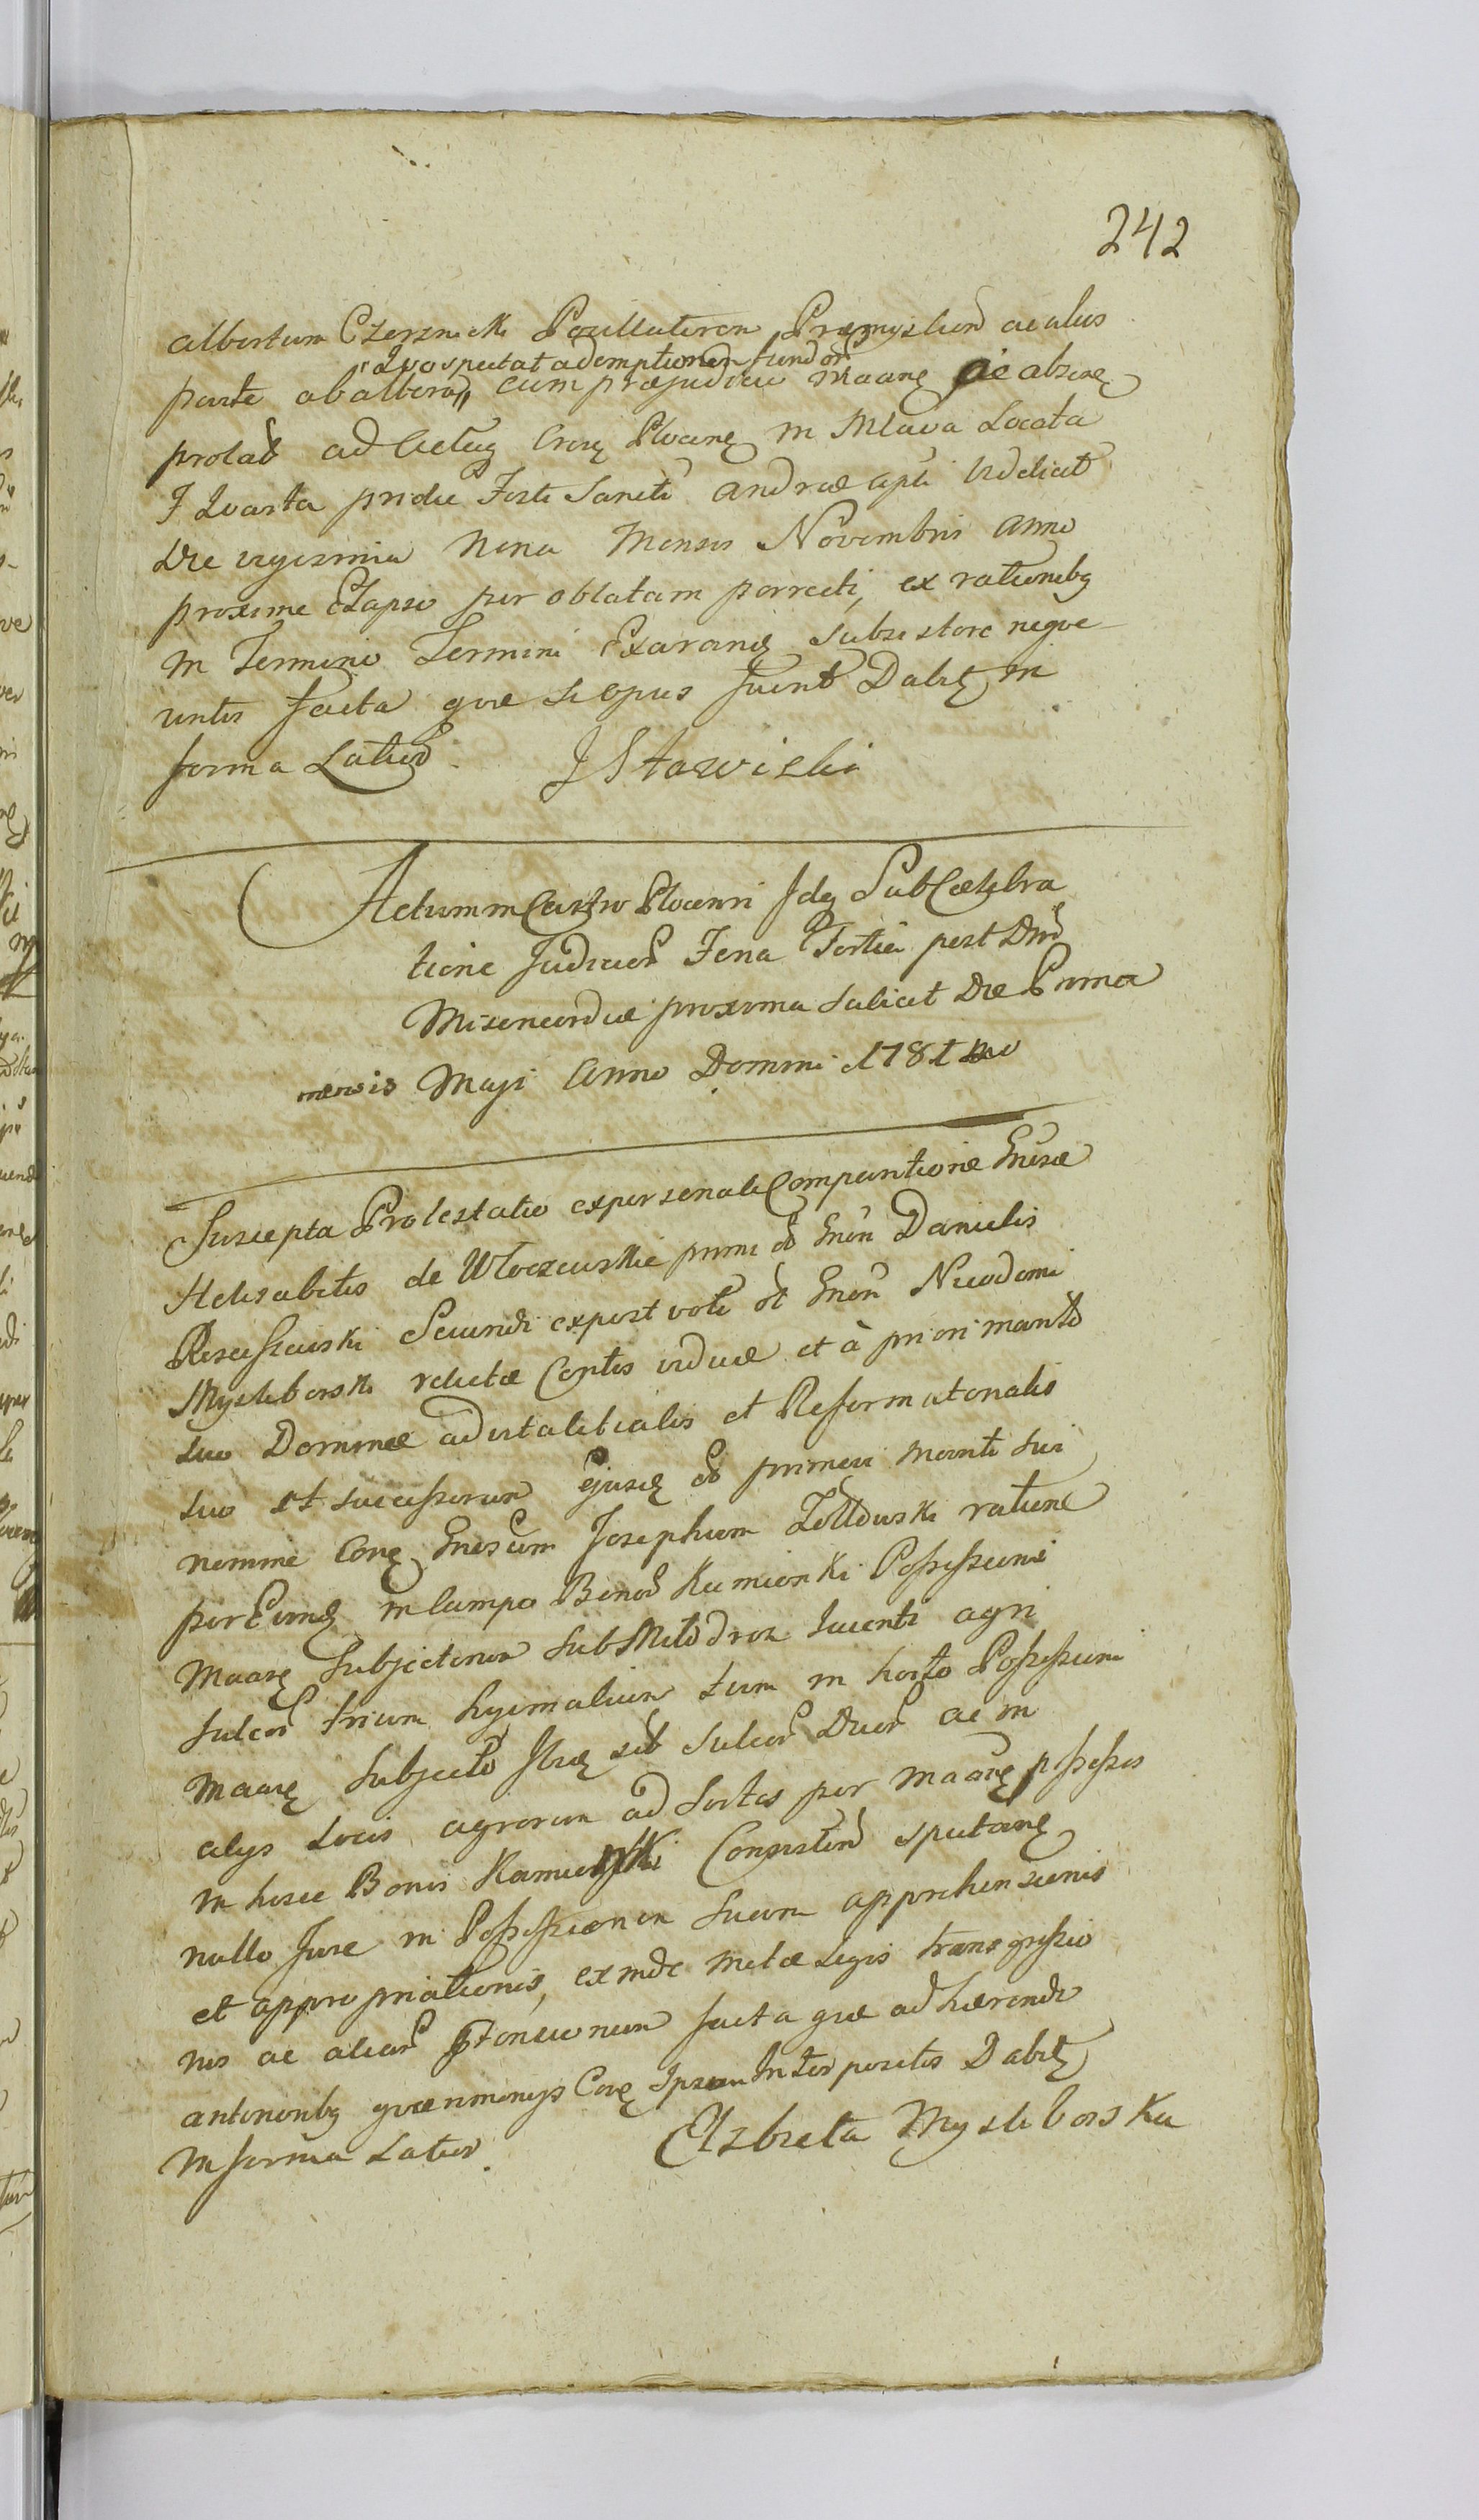 242
albertum Czersnicki Pocillatorem Præmislien ac alias
"Quo spectat ademptionem fundor
parte ab altera,, cum præjudicio Maane ac absene
prolat ad Actus Crses Plocens in Mlava Locata
F Quarta pridie Festi Sancti Andreæ apli videlicet
die vigesima Nona Mensis Novembris Anno
proxime Elapso per oblatam porrecti, ex rationibg
in Termino Termini Exarane subsistere neque
untis facta quæ si opus fuerit Dabit in
forma Latiori. JStawiski
Actum in Castro Plocensi Idq Sub Celebra
tione Judicior Feria Tertia post Dnicam
Misericordiæ proxima Scilicet Die Prima
mensis Maji Anno Domini 1781mo
Suscepta Protestatio ex personali Comparitione Gnesæ
Helisabetis de Wloczewskie primi ol Gnen Danielis
Rosciszewski Secundi expost voti ol Gnen Nicodemi
Mysliborski relictæ Contis viduæ et à priori marito
suo Dominæ advitalitialis et Reformatorialis
suo et successorum ejusdem ol primevi Mariti sui
nomine Cone Gnesum Josephum Zołtowski ratione
per Eumd in Campo Bonor Kamionki Possessioni
Maane Subjectorum sub Meto droz Lucenti agri
Sulcor trium hyemalium tum in horto Possessioni
Maane subjecto Itid sit Sulcor Duor ac in
alys Locis agrorum ad Sortes per Maane possessas
in hisce Bonis Kamionki Consisten spectane
nullo Jure in Possessionem Suam apprehensionis
et appropriationis, exinde metæ Legis transgressio
nis ac aliar ptensionum facta quæ adhærendo
anterioribg quæ nimonys Cone Ipsam Interpositis Dabit
in forma Latior. Elzbieta Mysliborska